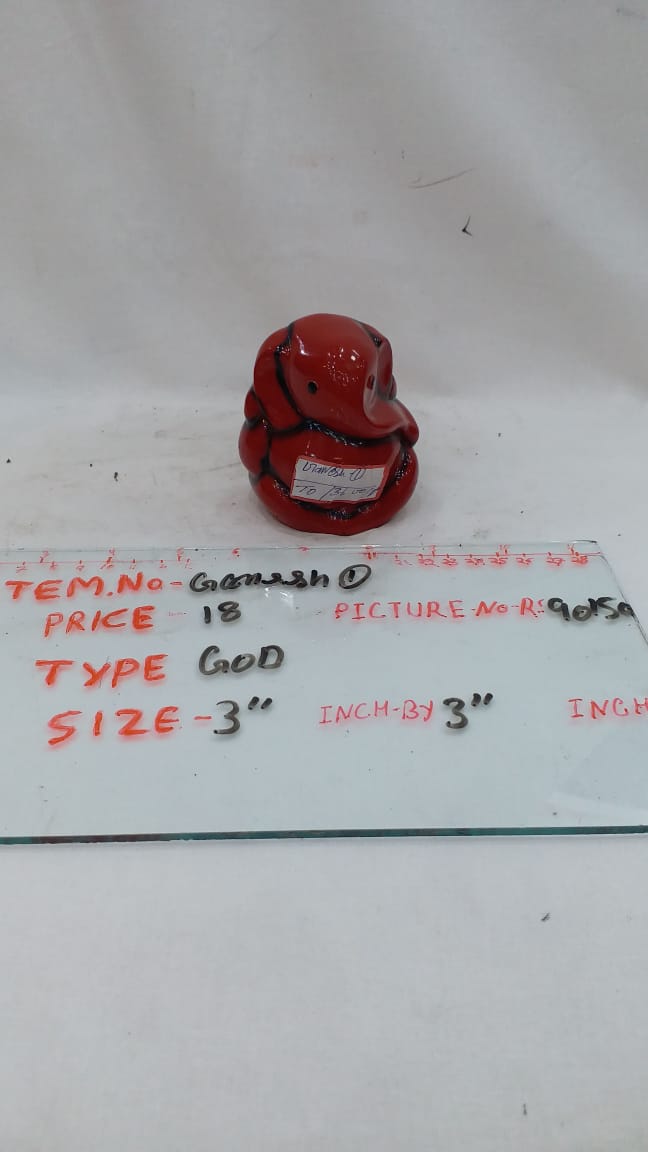 Ganesh ①
TEM.No - Ganesh ①
PRICE - 18 PICTURE-No-RS
TYPE GOD
SIZE - 3" INCH-BY 3" INCH